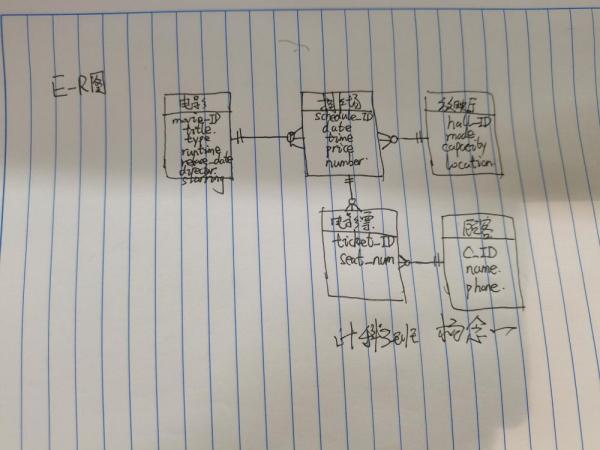 E-R图
电影
movie_ID
title.
type
runtime
release_date
director.
starring
排场
schedule_ID
date
time
price
number.
放映厅
hall_ID
mode
capacity
location
电影票
ticket_ID
seat_num
顾客
C_ID
name.
phone.
计科
一